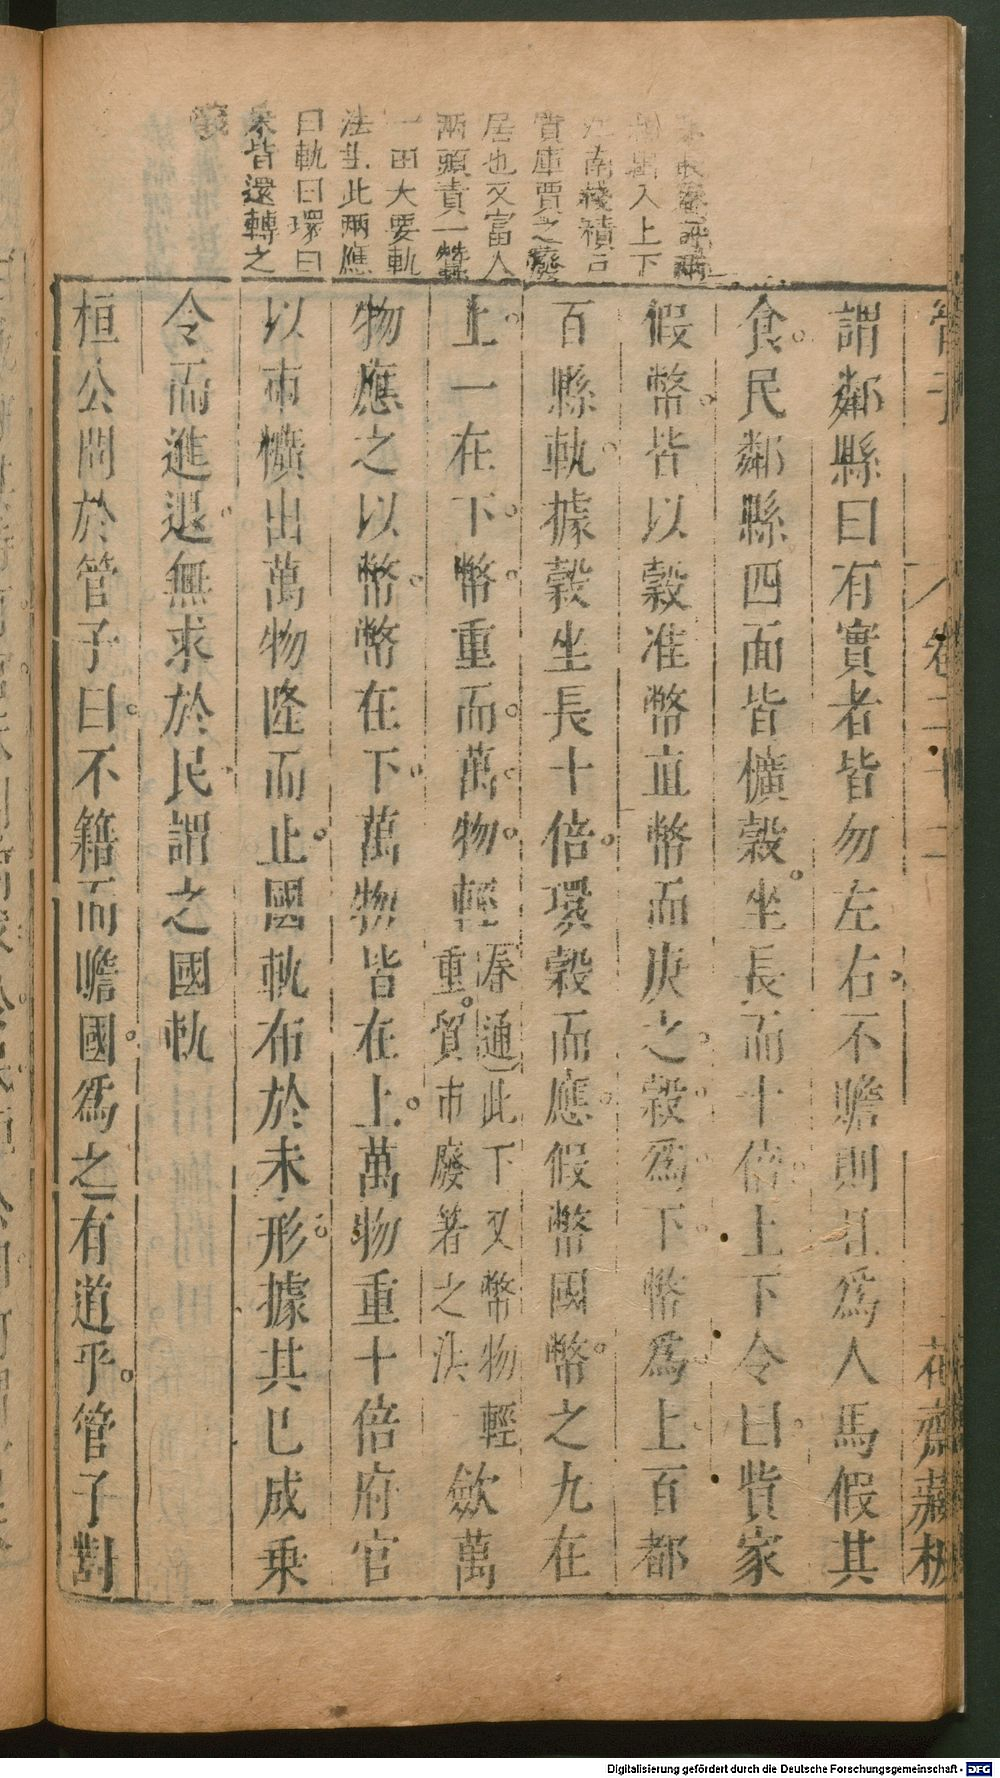 管子
卷二十二
花齋藏板
謂鄰縣曰有實者皆勿左右不贍則且爲人馬假其
食民鄰縣四面皆櫎穀坐長而十倍上下令曰貲家
假幣皆以穀准幣直幣而庚之穀爲下幣爲上百都
百縣軌據穀坐長十倍環穀而應假幣國幣之九在
上一在下幣重而萬物輕
通此下又幣物輕
重貿市廢著之法
歛萬
物應之以幣幣在下萬物皆在上萬物重十倍府官
以市櫎出萬物隆而止國軌布於未形據其已成乗
令而進退無求於民謂之國軌
桓公問於管子曰不籍而贍國爲之有道乎管子對
出入上下
江南錢積
賈庫賈之廢
居也又富人
兩頭責一
一田大要軌
法此兩應
曰軌曰環曰
皆還轉之
Digitalisierung gefördert durch die Deutsche Forschungsgemeinschaft - DFG